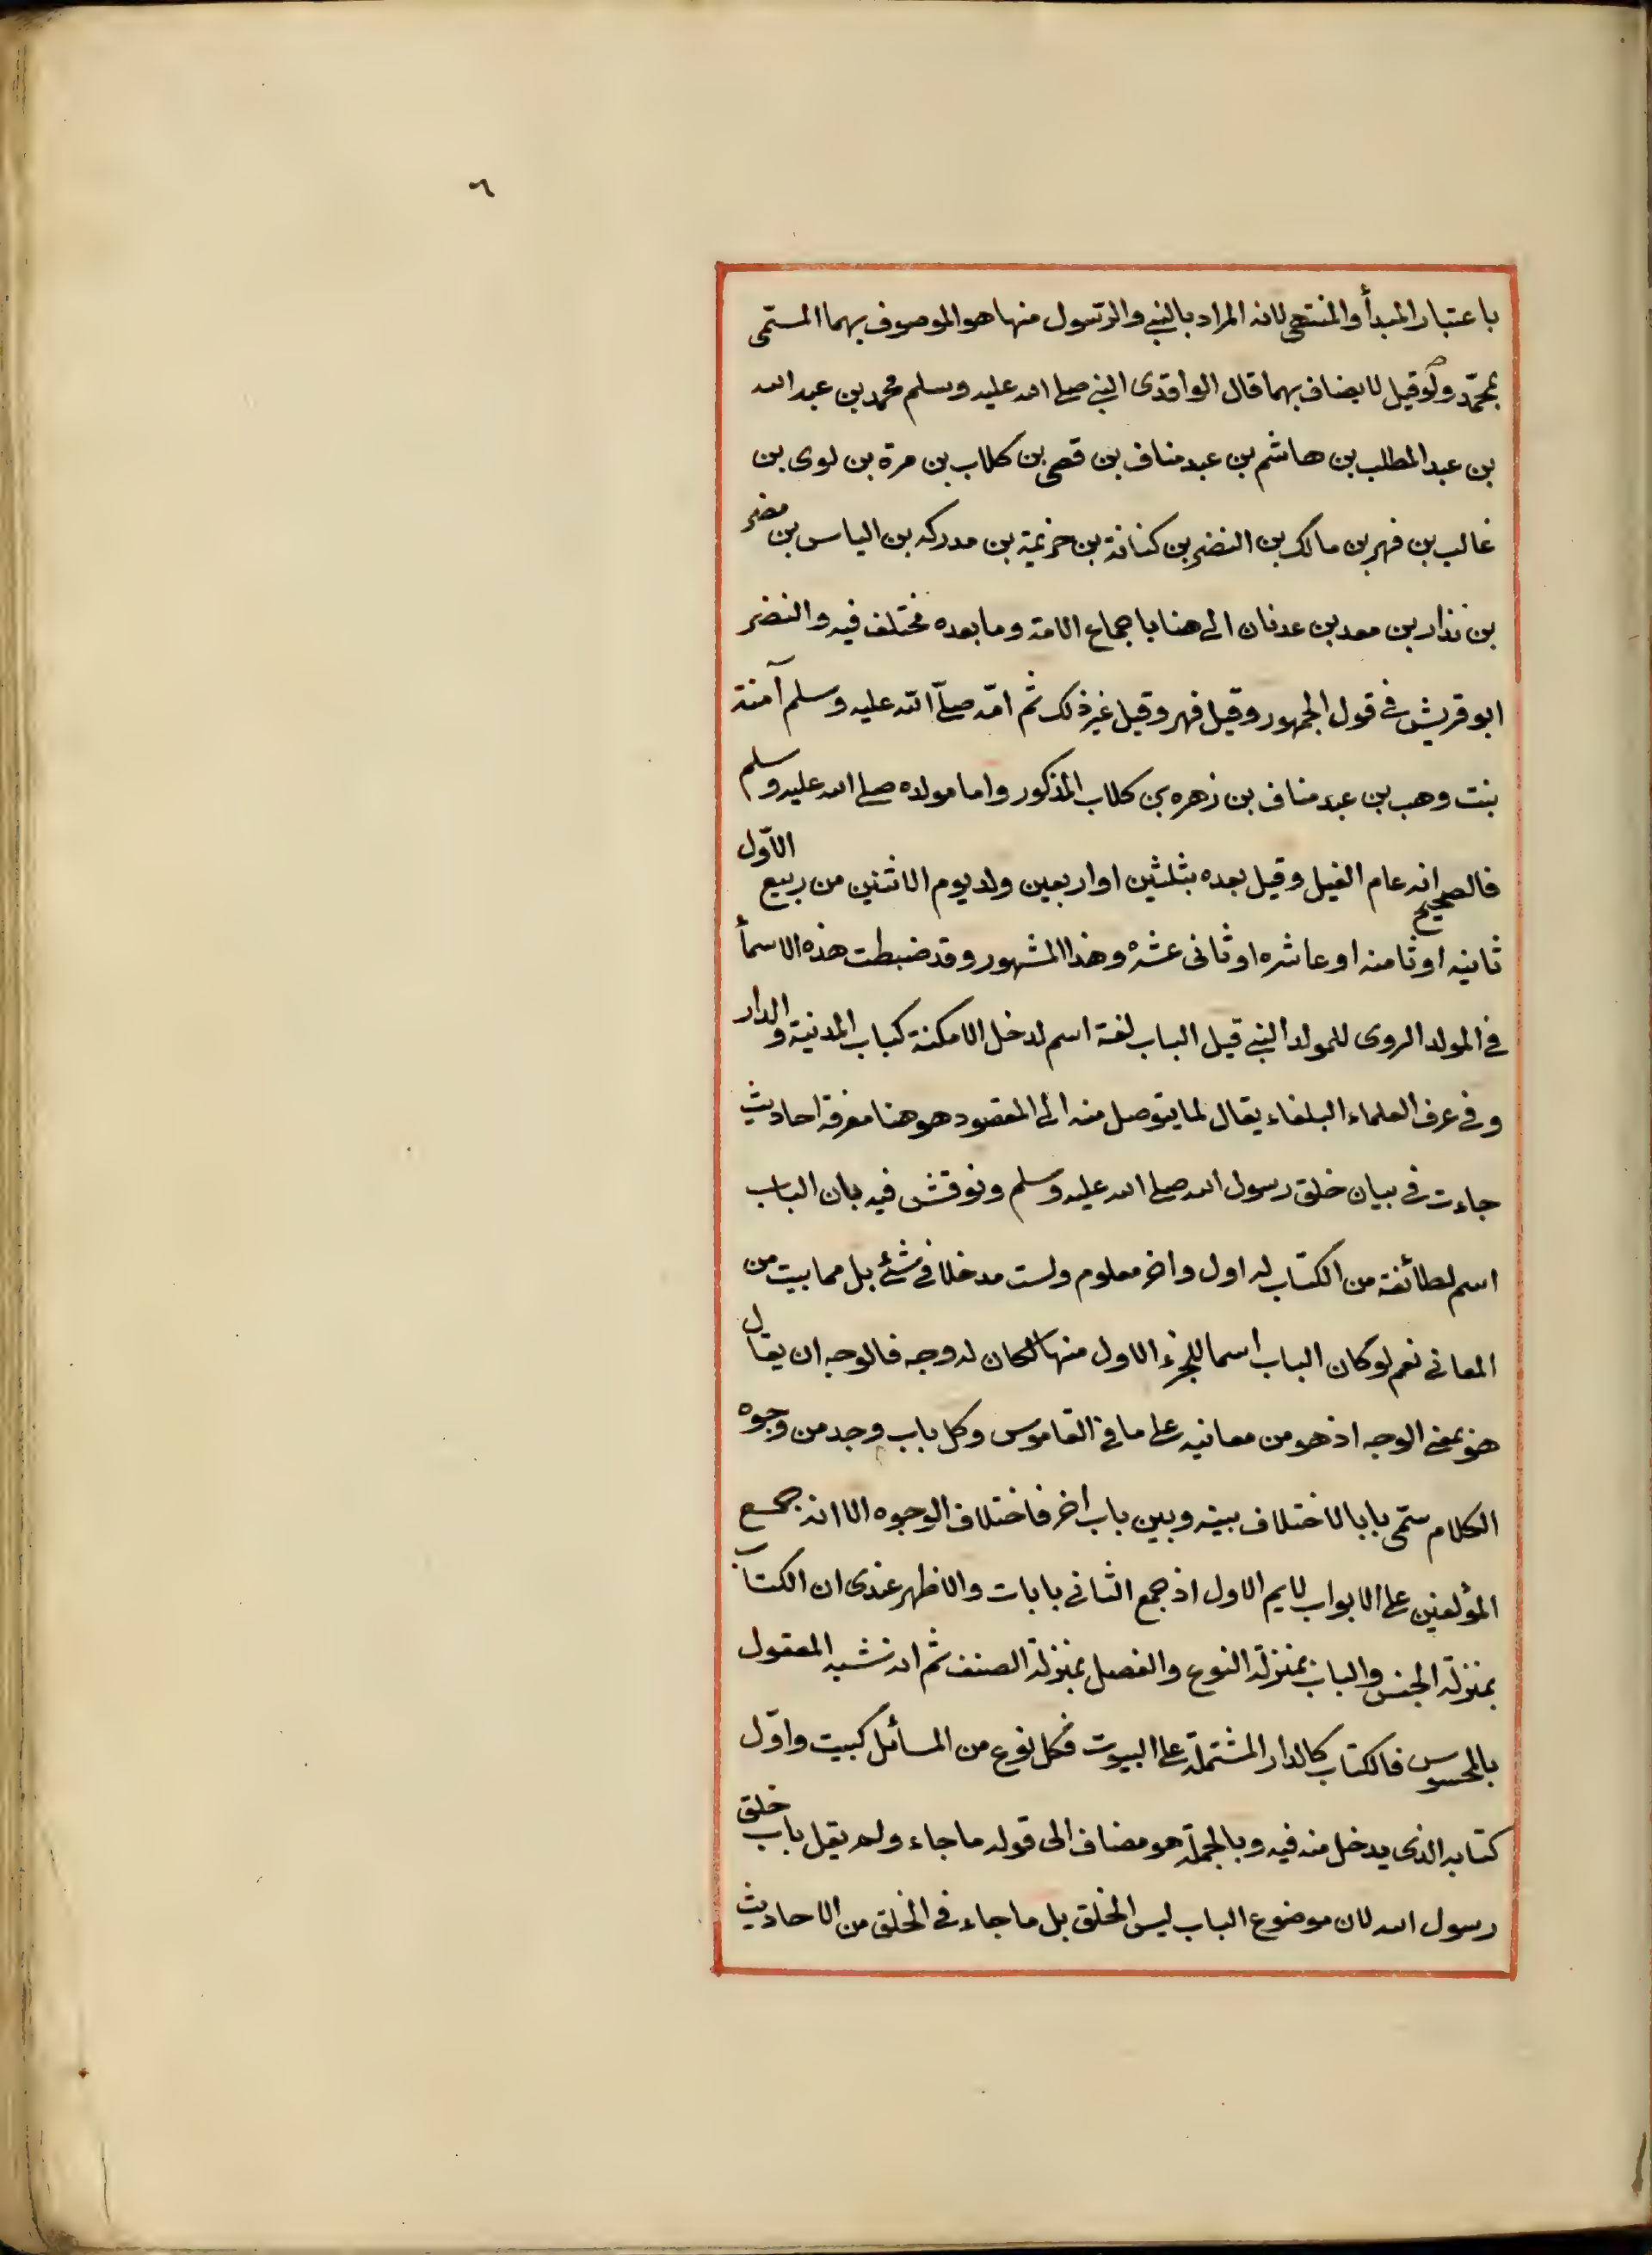 ٦
باعتبار المبدأ والمنتهى لانه المراد بالنبي والرّسول منها هو الموصوف بهما المسمّى
بمحمّد ولو قيل لا يضاف بهما قال الواقدى النبي صلى الله عليه وسلم محمد بن عبد الله
بن عبد المطلب بن هاشم بن عبد مناف بن قصى بن كلاب بن مرة بن لوى بن
غالب بن فهر بن مالك بن النضر بن كنانة بن خزيمة بن مدركه بن الياس بن مضر
بن نذار بن معد بن عدنان الى هنا باجماع الامة وما بعده مختلف فيه والنضر
ابو قريش فى قول الجمهور وقيل فهر وقيل غير ذلك ثم امّه صلّى الله عليه وسلم آمنة
بنت وهب بن عبد مناف بن زهره بن كلاب المذكور واما مولده صلى الله عليه وسلم
فالصحيح انه عام الفيل وقيل بعده بثلثين او اربعين ولد يوم الاثنين من ربيع الاوّل
ثانيه او ثامنه او عاشره او ثانى عشرْ وهذا المشهور وقد ضبطت هذه الاسمأ
فى المولد الروى للمولد النبي قيل الباب لغة اسم لدخل الامكنة كباب المدنية والدار
وفى عرف العلماء البلغاء يقال لما يتوصل منه الى المقصود هو هنا معرفة احاديث
جاءت فى بيان خلق رسول الله صلى الله عليه وسلم ونوقش فيه بان الباب
اسم لطائفة من الكتاب له اول واخر معلوم ولست مدخلا فى شئ بل مما بيت من
المعانى نعم لو كان الباب اسما للجزء الاول منها لكان له وجه فالوجه ان يقال
هو بمعنى الوجه اذ هو من معانيه على ما فى القاموس وكل باب وجد من وجوه
الكلام سمّى بابا لاختلاف بينه وبين باب اخر فاختلاف الوجوه الا انه جمع
المؤلفين على الابواب لايم الاول اذ جمع الثانى بابات والاظهر عندى ان الكتاب
بمنزلة الجنس والباب بمنزلة النوع والفصل بمنزلة الصنف ثم انه شبه المعقول
بالمحسوس فالكتاب كالدار المشتملة على البيوت فكل نوع من المسائل كبيت واوّل
كتابه الذى يدخل منه فيه وبالجملة هو مضاف الى قوله ما جاء ولم يقل باب خلق
رسول الله لان موضوع الباب ليس الخلق بل ما جاء فى الخلق من الاحاديث